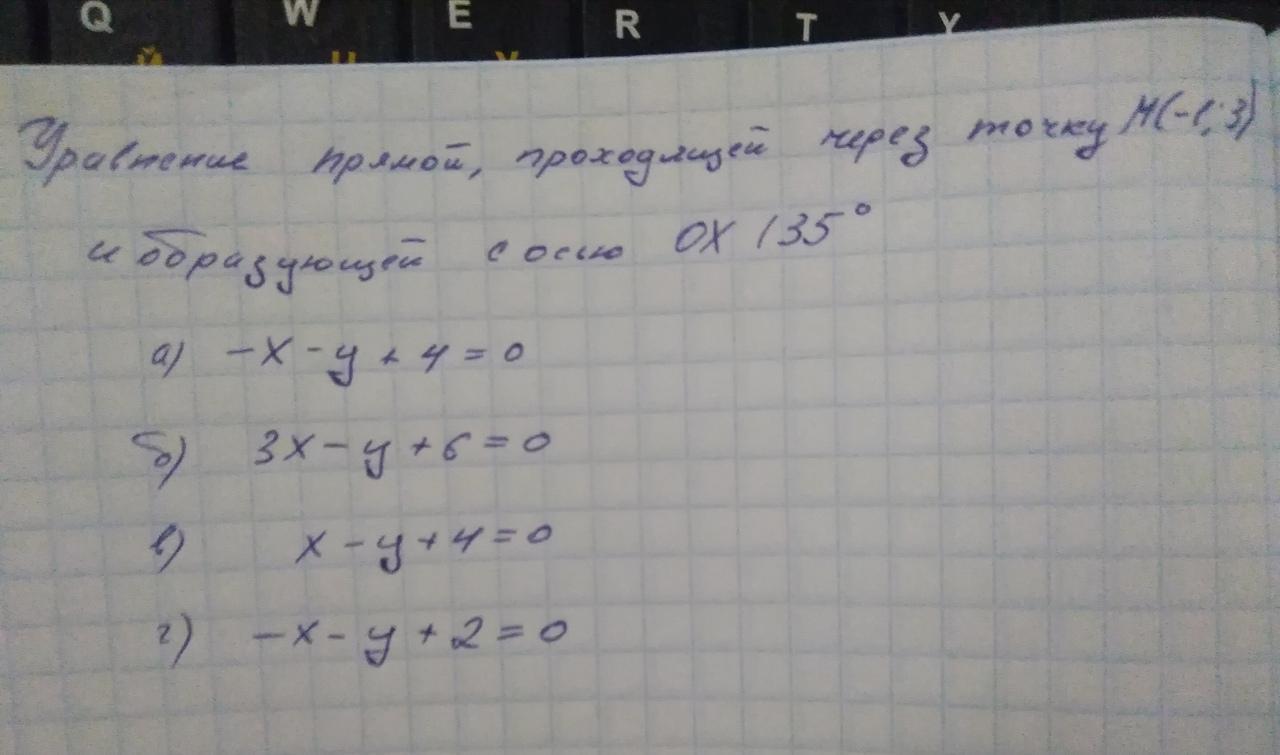 Q W E R T Y
Й Ц У
Уравнение прямой, проходящей через точку М(-1; 3)
и образующей с осью ОХ 135°
а) -x - y + 4 = 0
б) 3x - y + 6 = 0
в) x - y + 4 = 0
г) -x - y + 2 = 0